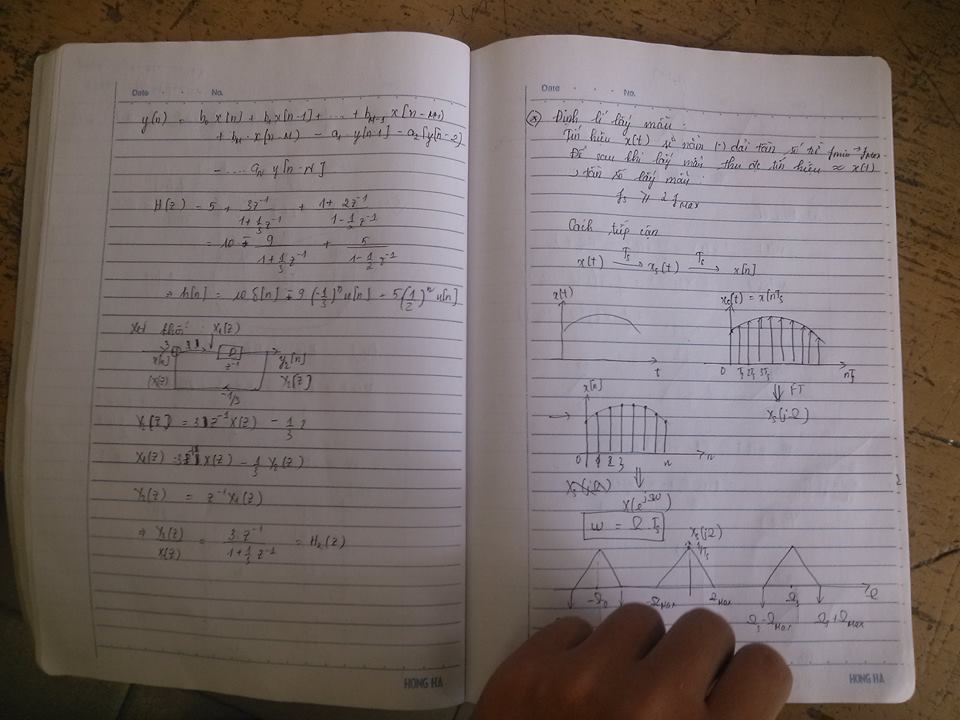 Date No.
y(n) = b₀ x[n] + b₁ x[n-1] + ... + b_{M-1} x[n-M+1]
+ b_M . x[n-M) - a₁ y[n-1] - a₂ [y[n-2]
- .... a_N y[n-N]
H(z) = 5 + 3z⁻¹ / (1+1/3 z⁻¹) + (1+2z⁻¹) / (1-1/2 z⁻¹)
= 10 - 9 / (1+1/3 z⁻¹) + 5 / (1-1/2 z⁻¹)
⇒ h[n] = 10 δ[n] - 9 (-1/3)ⁿ u[n] - 5(1/2)ⁿ u[n]
Xét khối X₁(z)
3 D
x[n] z⁻¹ y₂[n]
X(z) Y₂(z)
-1/3
X₁(z) X(z) - 1/3 Y₂(z)
Y₂(z) = z⁻¹X₁(z)
⇒ Y₂(z)/X(z) = 3.z⁻¹ / (1+1/3 z⁻¹) = H₂(z)
HONG HA
Date No.
Định lí lấy mẫu
Tín hiệu x(t) sẽ nằm (-) dải tần số từ fmin → fmax
Để sau khi lấy mẫu thu đc tín hiệu ≈ x(t)
, tần số lấy mẫu
fs ≥ 2 fmax
Cách tiếp cận
x(t) →Ts xs(t) →Ts x[n]
x(t) xs(t) = x[nTs
t 0 Ts 2Ts 3Ts nTs
⇓ FT
Xs(jΩ)
x[n]
0 1 2 3 n n
⇓
X(e^{jω})
ω = Ω Ts
Xs(jΩ)
1/Ts
-Ωs -Ωmax Ωmax Ωs Ω
Ωs-Ωmax Ωs+Ωmax
HONG HA